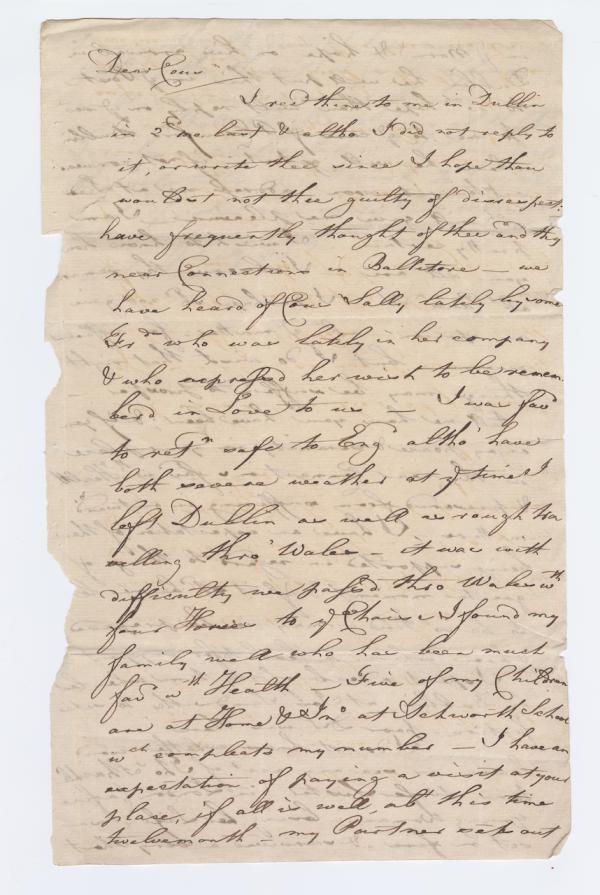 Dear Cous.ⁿ
I recd. thine to me in Dublin
in 2.d mo. last & altho I did not reply to
it, or write thee since I hope thou
wouldst not thee guilty of disrespect.
have frequently thought of thee and thy
near Connections in Balltitore — we
have heard of Cous.ⁿ Sally lately by some
Frds. who was lately in her company
& who expressed her wish to be remem
berd in Love to us — I was favd
to retⁿ safe to Engd. altho' have
both severe weather at ye time I
left Dublin as well as rough tra
velling thro' Wales — it was with
difficulty we passed thro Wales wth
four Horses to ye Chaise & I found my
family well who has been much
favd wth Health — Five of my Children
are at Home & Jno. at Ackworth School
wch compleats my number — I have an
expectation of paying a visit at your
place, if all is well, abt this time
twelvemonth — my Partner sets out